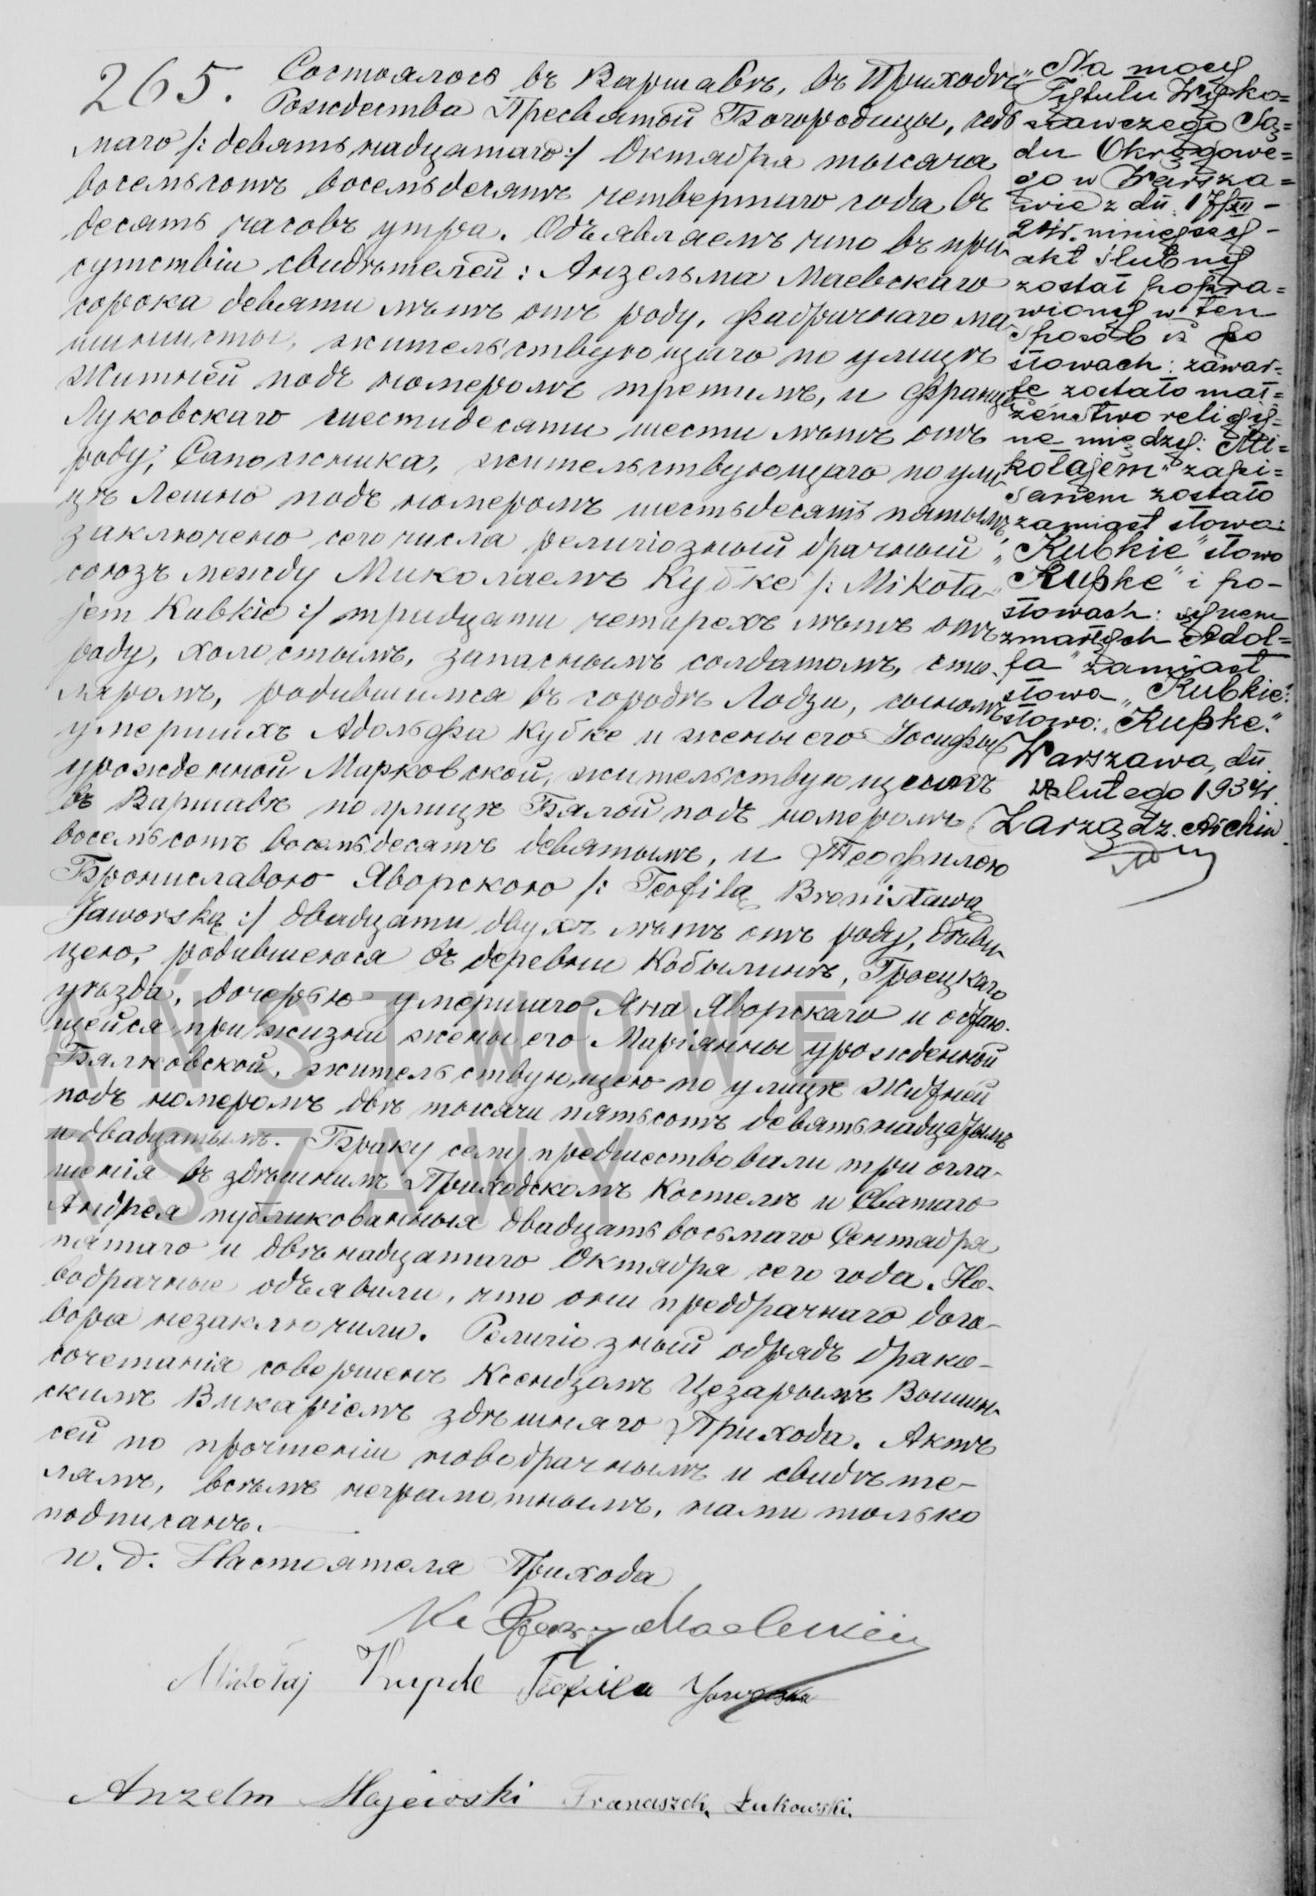 265. Состоялось въ Варшавѣ, въ Приходѣ
Рождества Пресвятой Богородицы, седь
маго /: девятьнадцатаго :/ Октября тысяча
восемьсотъ восемьдесятъ четвертаго года въ
десять часовъ утра. Объявляемъ что въ при
сутствіи свидѣтелей: Анзельма Маевскаго
сорока девяти лѣтъ отъ роду, фабричнаго ма
шинисты, жительствующаго по улицѣ
Житней подъ номеромъ третимъ, и Франца
Луковскаго шестидесяти шести лѣтъ отъ
роду, Сапожника, жительствующаго по ули
цѣ Лешно подъ номеромъ шестьдесятъ пятымъ
заключено сего числа религіозный брачный
союзъ между Миколаемъ Кубке /: Mikoła-
jem Kubkie :/ тридцати четырехъ лѣтъ отъ
роду, холостымъ, запаснымъ солдатомъ, сто-
ляромъ, родившимся въ городѣ Лодзи, сыномъ
умершихъ Адольфа Кубке и жены его Іосифы
урожденной Марковской, жительствующимъ
въ Варшавѣ по улицѣ Бялой подъ номеромъ
восемьсотъ восемьдесятъ девятымъ, и Теофилею
Брониславою Яворскою /: Teofilą Bronisławą
Jaworską :/ двадцати двухъ лѣтъ отъ роду, дѣви-
цею, родившеюся въ деревни Кобылинѣ, Гроецкаго
уѣзда, дочерью умершаго Яна Яворскаго и остаю-
щейся при жизни жены его Маріянны урожденной
Бялковской, жительствующею по улицѣ Житней
подъ номеромъ двѣ тысячи пятьсотъ девятьнадцатымъ
и двадцатымъ. Браку сему предшествовали три огла-
шенія въ здѣшнимъ Приходскомъ Костелѣ и Святаго
Андрея публикованныя двадцать восьмаго Сентября
пятаго и двѣнадцатаго Октября сего года. Но-
вобрачные объявили, что они предбрачнаго дого-
вора незаключили. Религіозный обрядъ брако-
сочетанія совершенъ Ксендзомъ Цезарымъ
скимъ Викаріемъ здѣшняго Прихода. Актъ
сей по прочтеніи новобрачнымъ и свидѣте-
лямъ, всѣмъ неграмотнымъ, нами только
подписанъ.
и. д. Настоятеля Прихода
Mikołaj Kupke Teofila Jaworska
Anzelm Majewski Franciszek Łukowski.
Na mocy
Tytułu Wyko=
nawczego Są=
du Okręgowe=
go w Warsza=
wie z dn. 17/XII -
niniejszy -
akt ślubny
został popra=
wiony w ten
sposób iż po
słowach: zawar=
te zostało mał=
żeństwo religij=
ne między: Mi=
kołajem" zapi=
sanem zostało
zamiast słowa:
"Kubkie" słowo
"Kupke" i po-
słowach: synem
zmarłych Adol=
fa" zamiast
słowa "Kubkie"
słowo: "Kupke".
Warszawa, dn
lutego 1934r.
Zarządz. Archiw.
AŃSTWOWE
RSZAWY